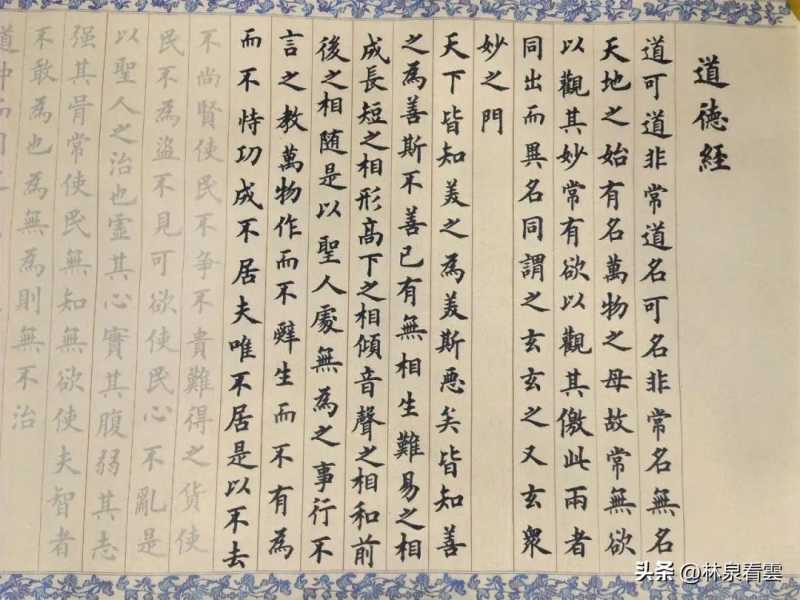 道德經
道可道非常道名可名非常名無名
天地之始有名萬物之母故常無欲
以觀其妙常有欲以觀其儌此兩者
同出而異名同謂之玄玄之又玄衆
妙之門
天下皆知美之為美斯惡矣皆知善
之為善斯不善已有無相生難易之相
成長短之相形高下之相傾音聲之相和前
後之相随是以聖人處無為之事行不
言之教萬物作而不辭生而不有為
而不恃功成不居夫唯不居是以不去
不尚賢使民不争不貴難得之貨使
民不為盜不見可欲使民心不亂是
以聖人之治也虛其心實其腹弱其志
强其骨常使民無知無欲使夫智者
不敢為也為無為則無不治
道沖而用
头条 @林泉看雲